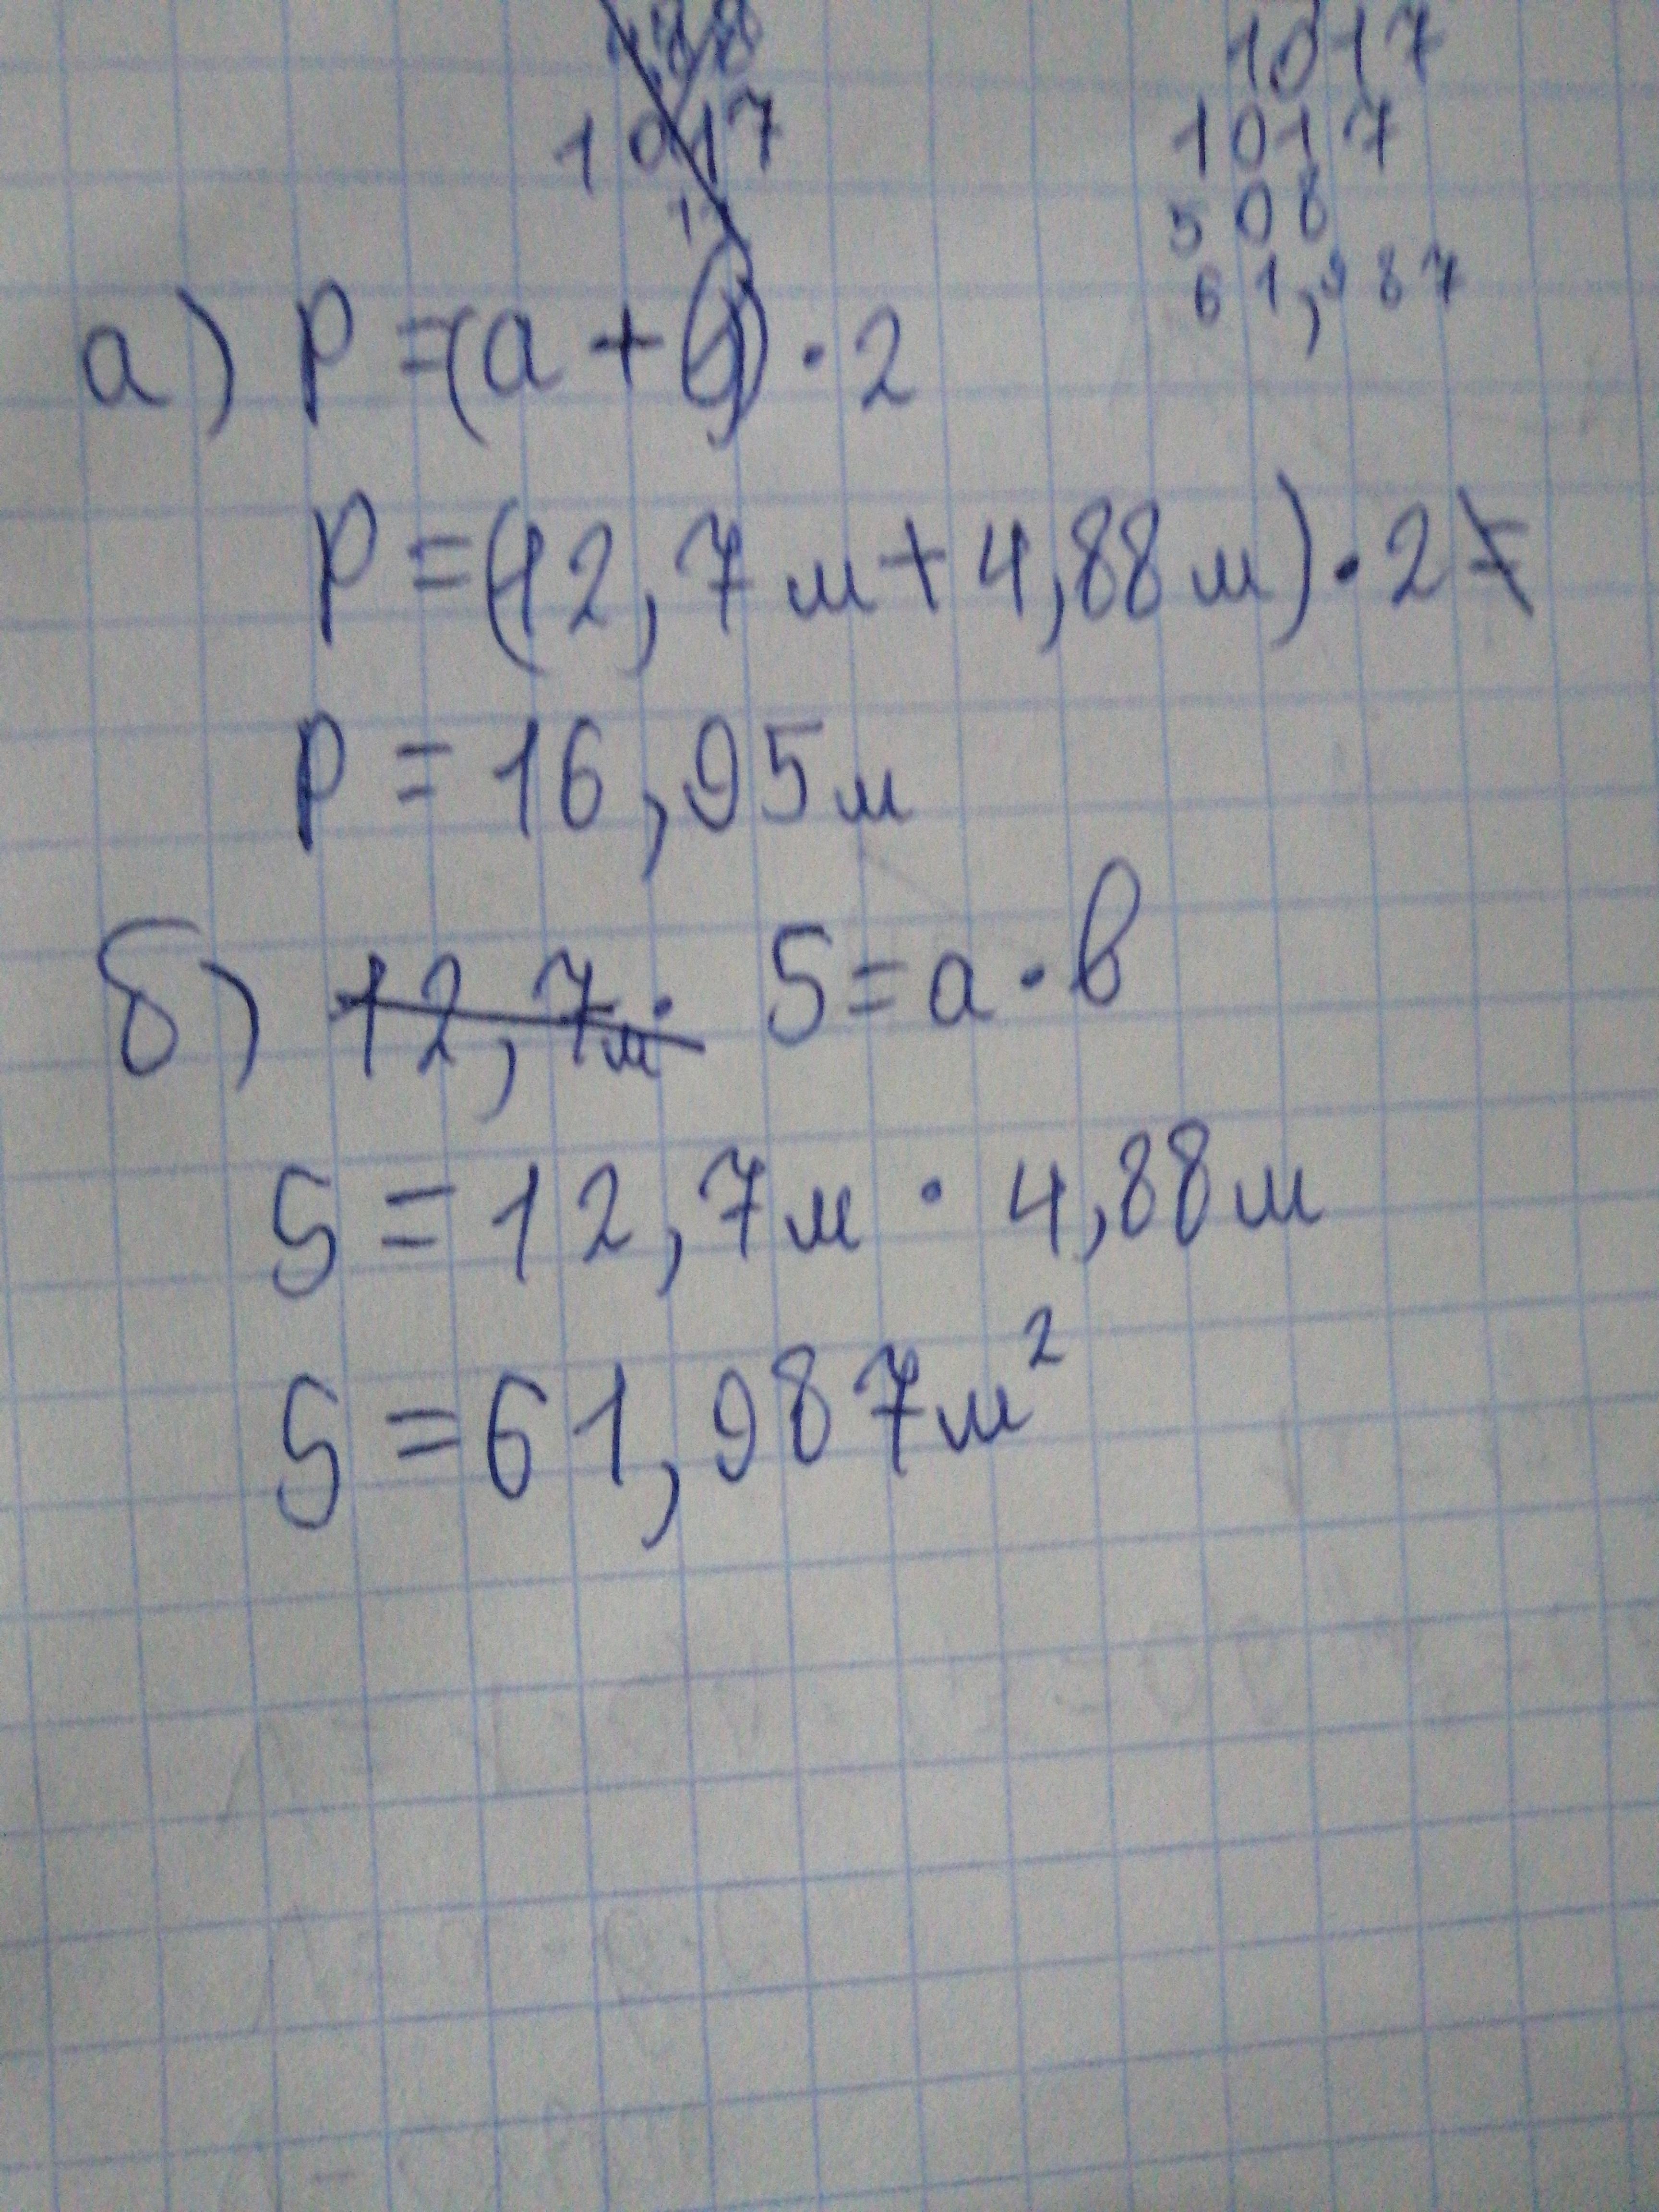 4,88 1017
1017 1017
508
61,987
а) P =(a + b) · 2
P = (12,7м + 4,88м) · 2 =
P = 16,95м
б) 12,7м · S = a · b
S = 12,7м · 4,88м
S = 61,987м²